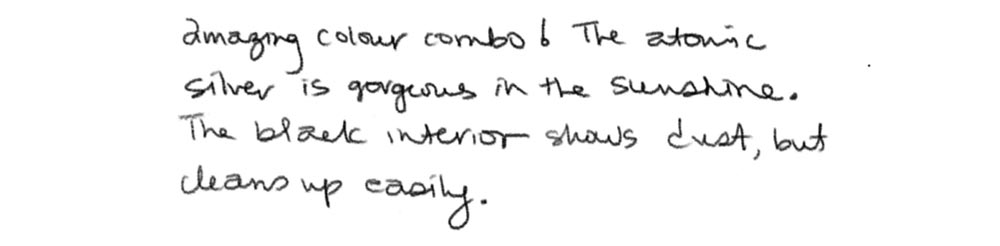 Amazing colour combo! The atomic
silver is gorgeous in the sunshine.
The black interior shows dust, but
cleans up easily.